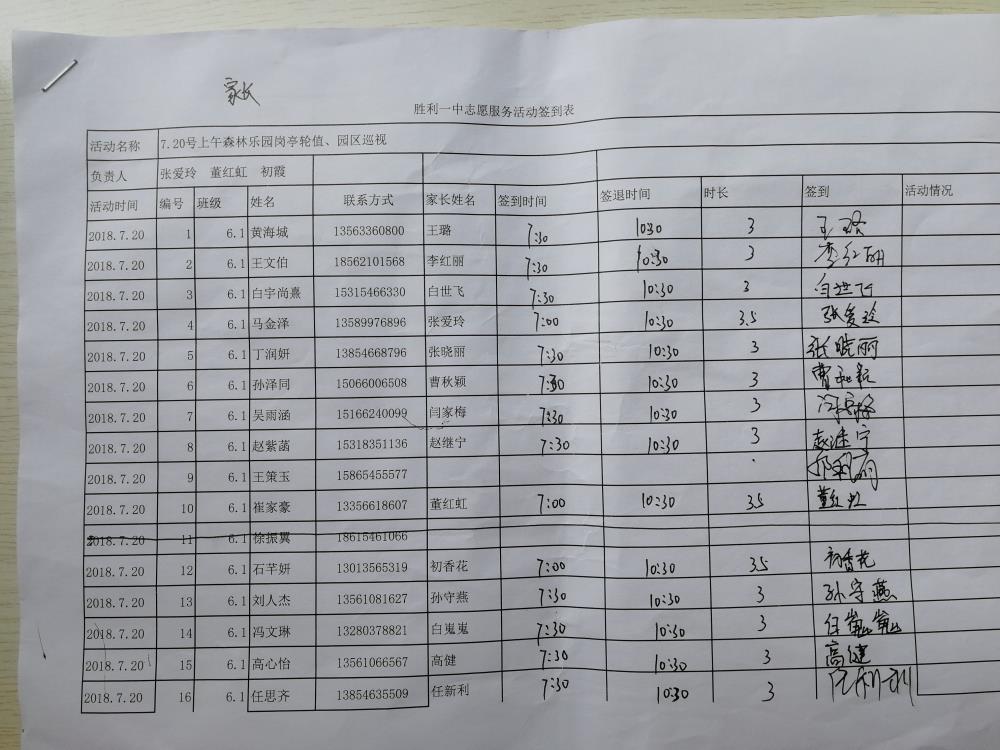 家长
胜利一中志愿服务活动签到表
活动名称 7.20号上午森林乐园岗亭轮值、园区巡视
负责人 张爱玲 董红虹 初霞
活动时间 编号 班级 姓名 联系方式 家长姓名 签到时间 签退时间 时长 签到 活动情况
2018.7.20 1 6.1 黄海城 13563360800 王璐 7:30 10:30 3 王璐
2018.7.20 2 6.1 王文伯 18562101568 李红丽 7:30 10:30 3 李红丽
2018.7.20 3 6.1 白宇尚熹 15315466330 白世飞 7:30 10:30 3 白世飞
2018.7.20 4 6.1 马金泽 13589976896 张爱玲 7:00 10:30 3.5 张爱玲
2018.7.20 5 6.1 丁润妍 13854668796 张晓丽 7:30 10:30 3 张晓丽
2018.7.20 6 6.1 孙泽同 15066006508 曹秋颖 7:30 10:30 3 曹秋颖
2018.7.20 7 6.1 吴雨涵 15166240099 闫家梅 7:30 10:30 3
2018.7.20 8 6.1 赵紫菡 15318351136 赵继宁 7:30 10:30 3 赵继宁
2018.7.20 9 6.1 王策玉 15865455577
2018.7.20 10 6.1 崔家豪 13356618607 董红虹 7:00 10:30 3.5 董红虹
2018.7.20 11 6.1 徐振翼 18615461066
2018.7.20 12 6.1 石芊妍 13013565319 初香花 7:00 10:30 3.5 初香花
2018.7.20 13 6.1 刘人杰 13561081627 孙守燕 7:30 10:30 3 孙守燕
2018.7.20 14 6.1 冯文琳 13280378821 白嵬嵬 7:30 10:30 3 白嵬嵬
2018.7.20 15 6.1 高心怡 13561066567 高健 7:30 10:30 3 高健
2018.7.20 16 6.1 任思齐 13854635509 任新利 7:30 10:30 3